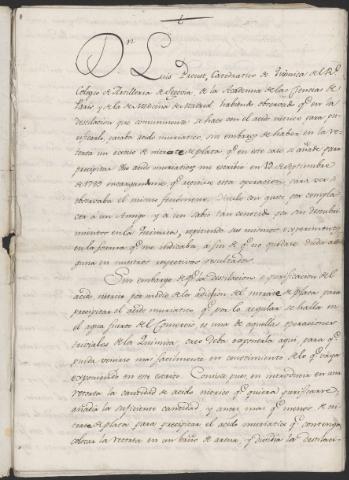 Dn. Luis Proust, Catedratico de Química del Rl.
Colegio de Artilleria de Segovia, de la Academia de las Ciencias de
Paris y de la de Medicina de Madrid, habiendo observado qe. en la
destilacion que comunmente se hace con el acido nitrico para pu-
rificarlo, pasaba acido muriatico, sin embargo de haber en la re-
torta un exceso de nitrate de plata qe. en este caso se añade para
precipitar dho acido muriatico, me escribio en 19 de Septiembre
de 1795 encargandome qe. repitiese esta operacion para ver si
observaba el mismo fenomeno. Hicelo con gusto por compla-
cer a un Amigo y a un sabio tan conocido por sus descubri-
mientos en la Quimica, repitiendo sus mismos experimentos
en la forma qe. me indicaba, a fin de qe. no quedase duda al-
guna en nuestros respectivos resultados.
Sin embargo de qe. la destilacion o purificacion del
acido nitrico por medio de la adicion del nitrate de plata para
precipitar el acido muriatico qe. por lo regular se halla en
el agua fuerte del Comercio es una de aquellas operaciones
triviales de la Quimica, creo debo exponerla aqui, para qe.
pueda venirse mas facilmente en conocimiento de lo qe. vaya
exponiendo en este escrito. Consiste, pues, en introducir en una
retorta la cantidad de acido nitrico qe. quiera purificarse,
añadir la suficiente cantidad, y antes mas qe. menos de ni-
trate de plata para precipitar el acido muriatico qe. contenga,
colocar la retorta en un baño de arena, y dividir la destilan-